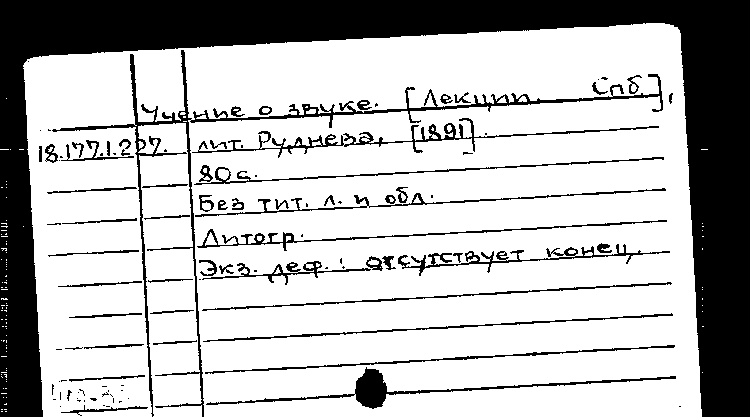 Учение о звуке. [Лекции. Спб.],
18.177.1.227. лит. Руднева, [1891].
80с.
Без тит. л. и обл.
Литогр.
Экз. деф.: отсутствует конец.